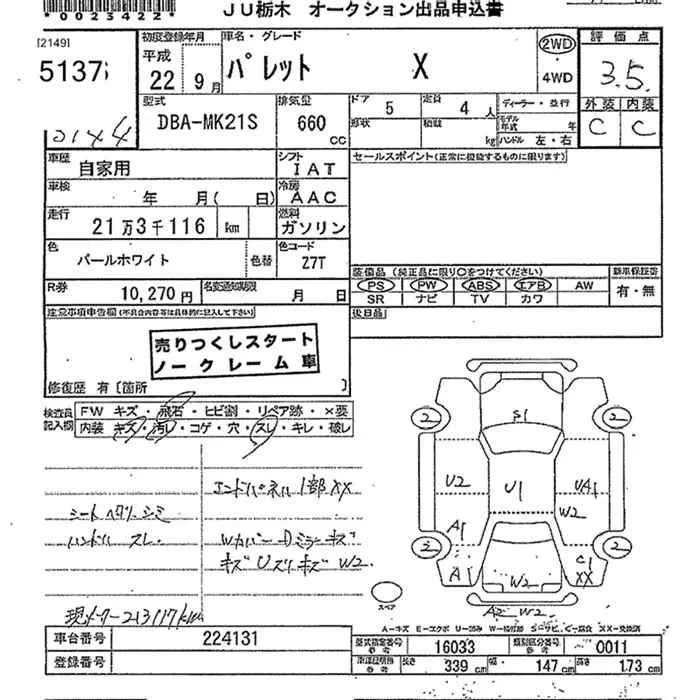 *0023422* JU栃木 オークション出品申込書
[2149] 初度登録年月 車名・グレード 2WD 評価点
5137 平成 22 9月 パレット X ・ 4WD 3.5
2144 型式 排気量 ドア 5 定員 4 人 ディーラー・並行 外装 内装
DBA-MK21S 660 CC 形状 積載 kg モデル年式 年 ハンドル 左・右 C C
車歴 自家用 シフト IAT セールスポイント(正常に機能するものに限ります)
車検 年 月( 日) 冷房 AAC
走行 21万3千116 km 燃料 ガソリン
色 パールホワイト 色替 色コード Z7T
装備品(純正品に限り○をつけてください) 新車保証書
R券 10,270円 名変通知期限 月 日 PS PW ABS エアB AW 有・無
SR ナビ TV カワ
注意事項申告欄(不具合内容等は具体的に記入して下さい) 後日品
売りつくしスタート
ノークレーム車
修復歴 有〔箇所 〕
検査員記入欄 FW キズ・飛石・ヒビ割・リペア跡・×要
内装 キズ・汚レ・コゲ・穴・スレ・キレ・破レ
エンドパネル1部XX
シートヘタリ・シミ
ハンドル スレ Wカバー Dミラーキズ
キズ Uズリキズ W2
現メーター213117km
S1
2 2
U2 U1 UA1
W2
A1
2 2
A W2 C1 XX
スペア A2 W2
A-キズ E-エクボ U-凹み W-補修跡 S-サビ C-腐食 XX-交換済
車台番号 224131 型式指定番号 参考 16033 類別区分番号 参考 0011
登録番号 長さ 339 cm 幅 147 cm 高さ 173 cm